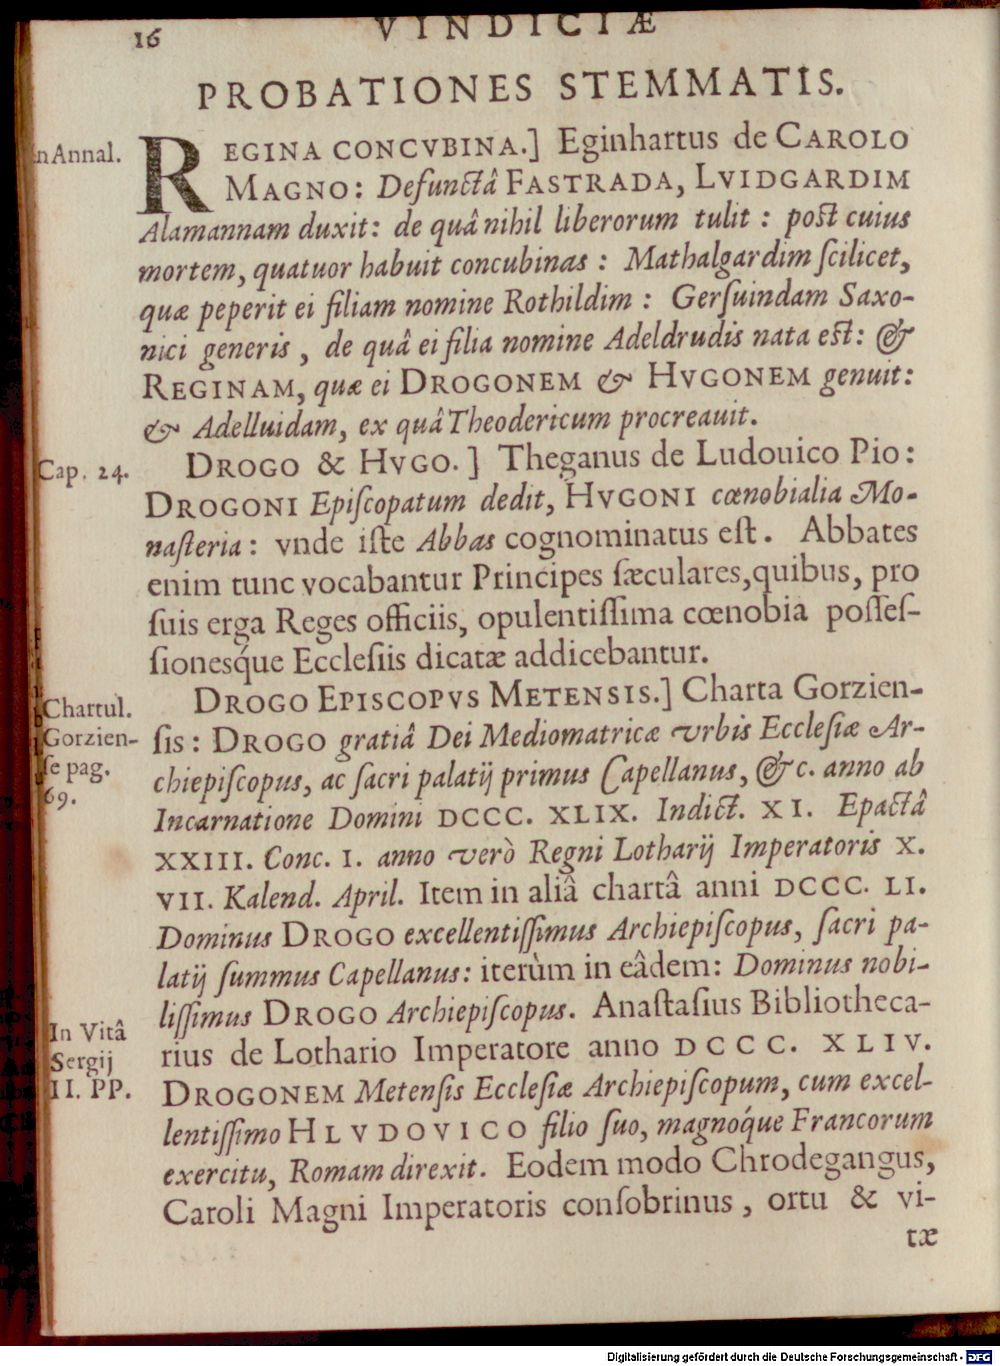 16
VINDICIÆ
PROBATIONES STEMMATIS.
nAnnal.
REGINA CONCVBINA.] Eginhartus de CAROLO
MAGNO: Defunctâ FASTRADA, LVIDGARDIM
Alamannam duxit: de quâ nihil liberorum tulit : post cuius
mortem, quatuor habuit concubinas : Mathalgardim ſcilicet,
quæ peperit ei filiam nomine Rothildim : Gerſuindam Saxo-
nici generis , de quâ ei filia nomine Adeldrudis nata est: &
REGINAM, quæ ei DROGONEM & HVGONEM genuit:
& Adelluidam, ex quâ Theodericum procreauit.
Cap. 24.
DROGO & HVGO. ] Theganus de Ludouico Pio:
DROGONI Epiſcopatum dedit, HVGONI cœnobialia Mo-
naſteria : vnde iſte Abbas cognominatus eſt. Abbates
enim tunc vocabantur Principes ſæculares, quibus, pro
ſuis erga Reges officiis, opulentiſſima cœnobia poſſeſ-
ſionesq́ue Ecclefiis dicatæ addicebantur.
Chartul.
Gorzien-
ſe pag.
69.
DROGO EPISCOPVS METENSIS.] Charta Gorzien-
ſis : DROGO gratiâ Dei Mediomatricæ vrbis Eccleſiæ Ar-
chiepiſcopus, ac ſacri palatij primus Capellanus, &c. anno ab
Incarnatione Domini DCCC. XLIX. Indict. XI. Epactâ
XXIII. Conc. I. anno verò Regni Lotharij Imperatoris X.
VII. Kalend. April. Item in aliâ chartâ anni DCCC. LI.
Dominus DROGO excellentiſſimus Archiepiſcopus, ſacri pa-
latij ſummus Capellanus: iterùm in eâdem: Dominus nobi-
liſſimus DROGO Archiepiſcopus. Anaſtaſius Bibliotheca-
In Vitâ
Sergij
II. PP.
rius de Lothario Imperatore anno DCCC. XLIV.
DROGONEM Metenſis Eccleſiæ Archiepiſcopum, cum excel-
lentiſſimo HLVDOVICO filio ſuo, magnoq́ue Francorum
exercitu, Romam direxit. Eodem modo Chrodegangus,
Caroli Magni Imperatoris conſobrinus , ortu & vi-
tæ
Digitalisierung gefördert durch die Deutsche Forschungsgemeinschaft - DFG